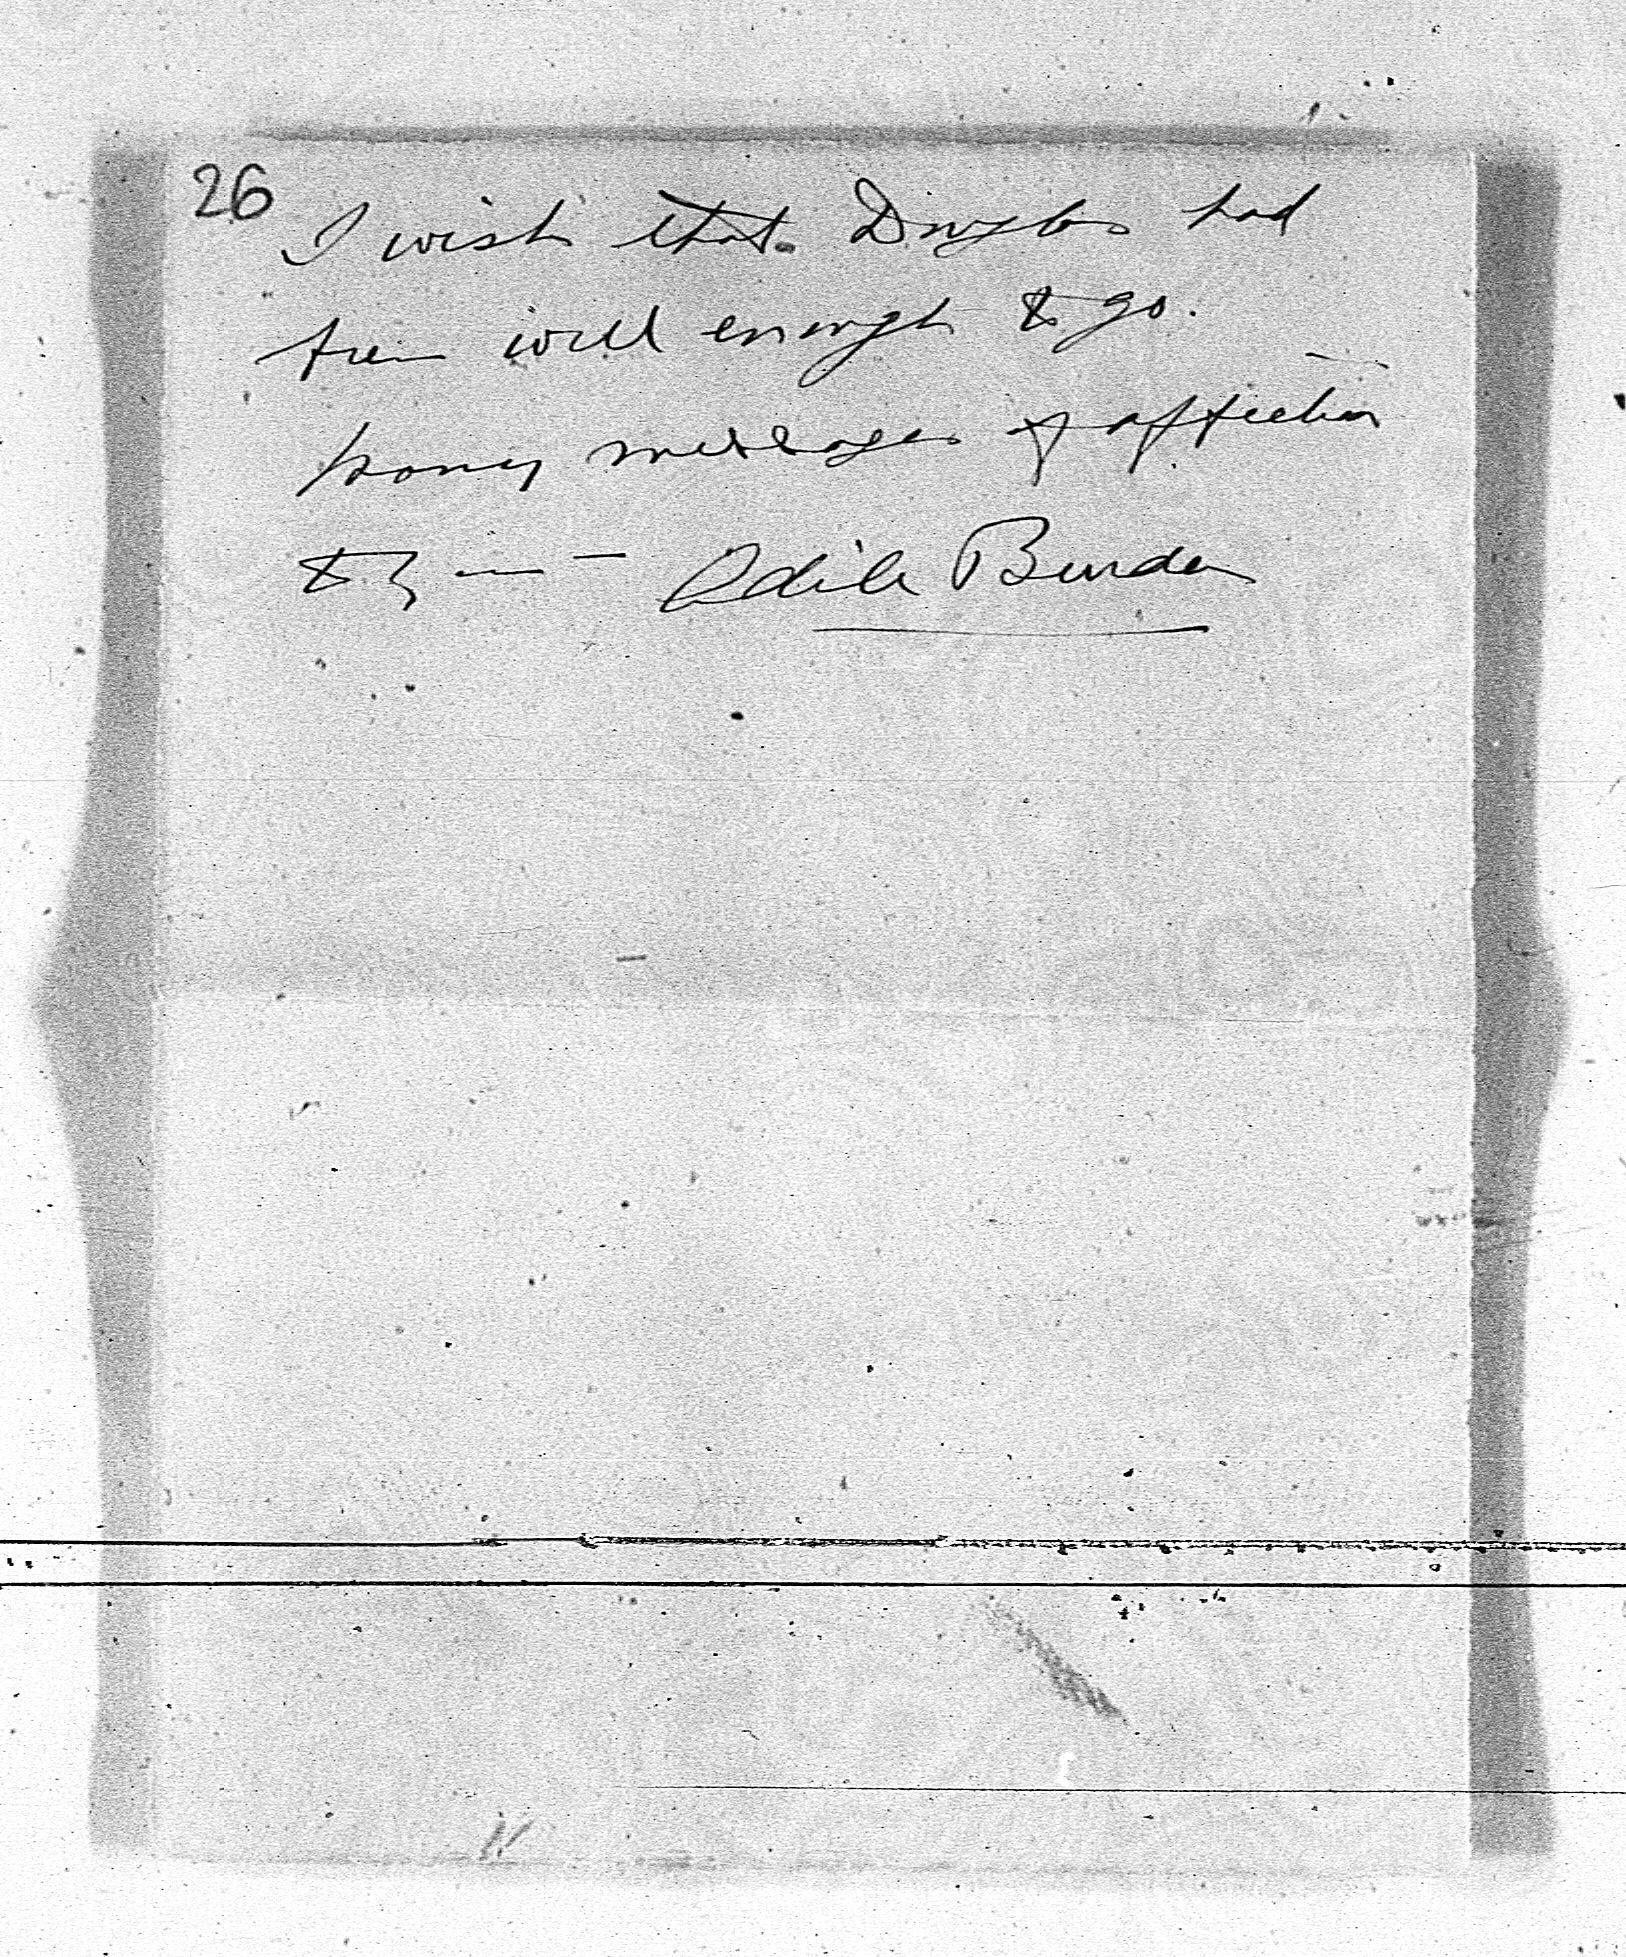 26
I wish that Douglas had
been well enough to go.
Many messages of affection
to you — Odile Burden